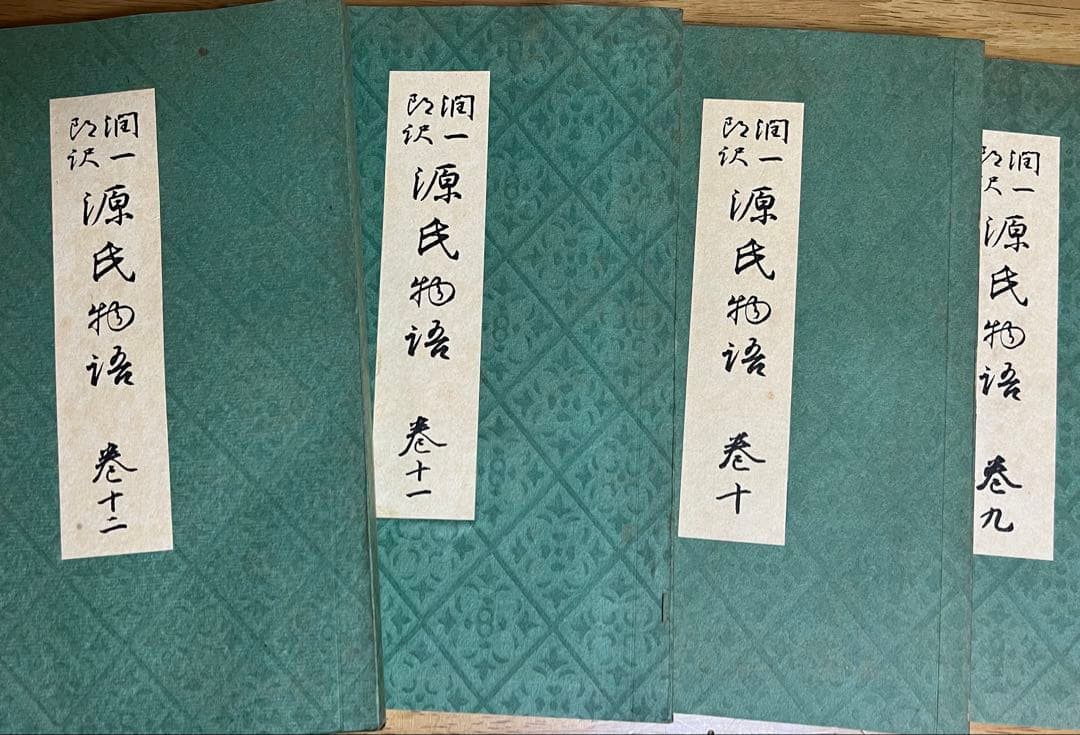 潤一郎訳 源氏物語 巻九
潤一郎訳 源氏物語 巻十
潤一郎訳 源氏物語 巻十一
潤一郎訳 源氏物語 巻十二